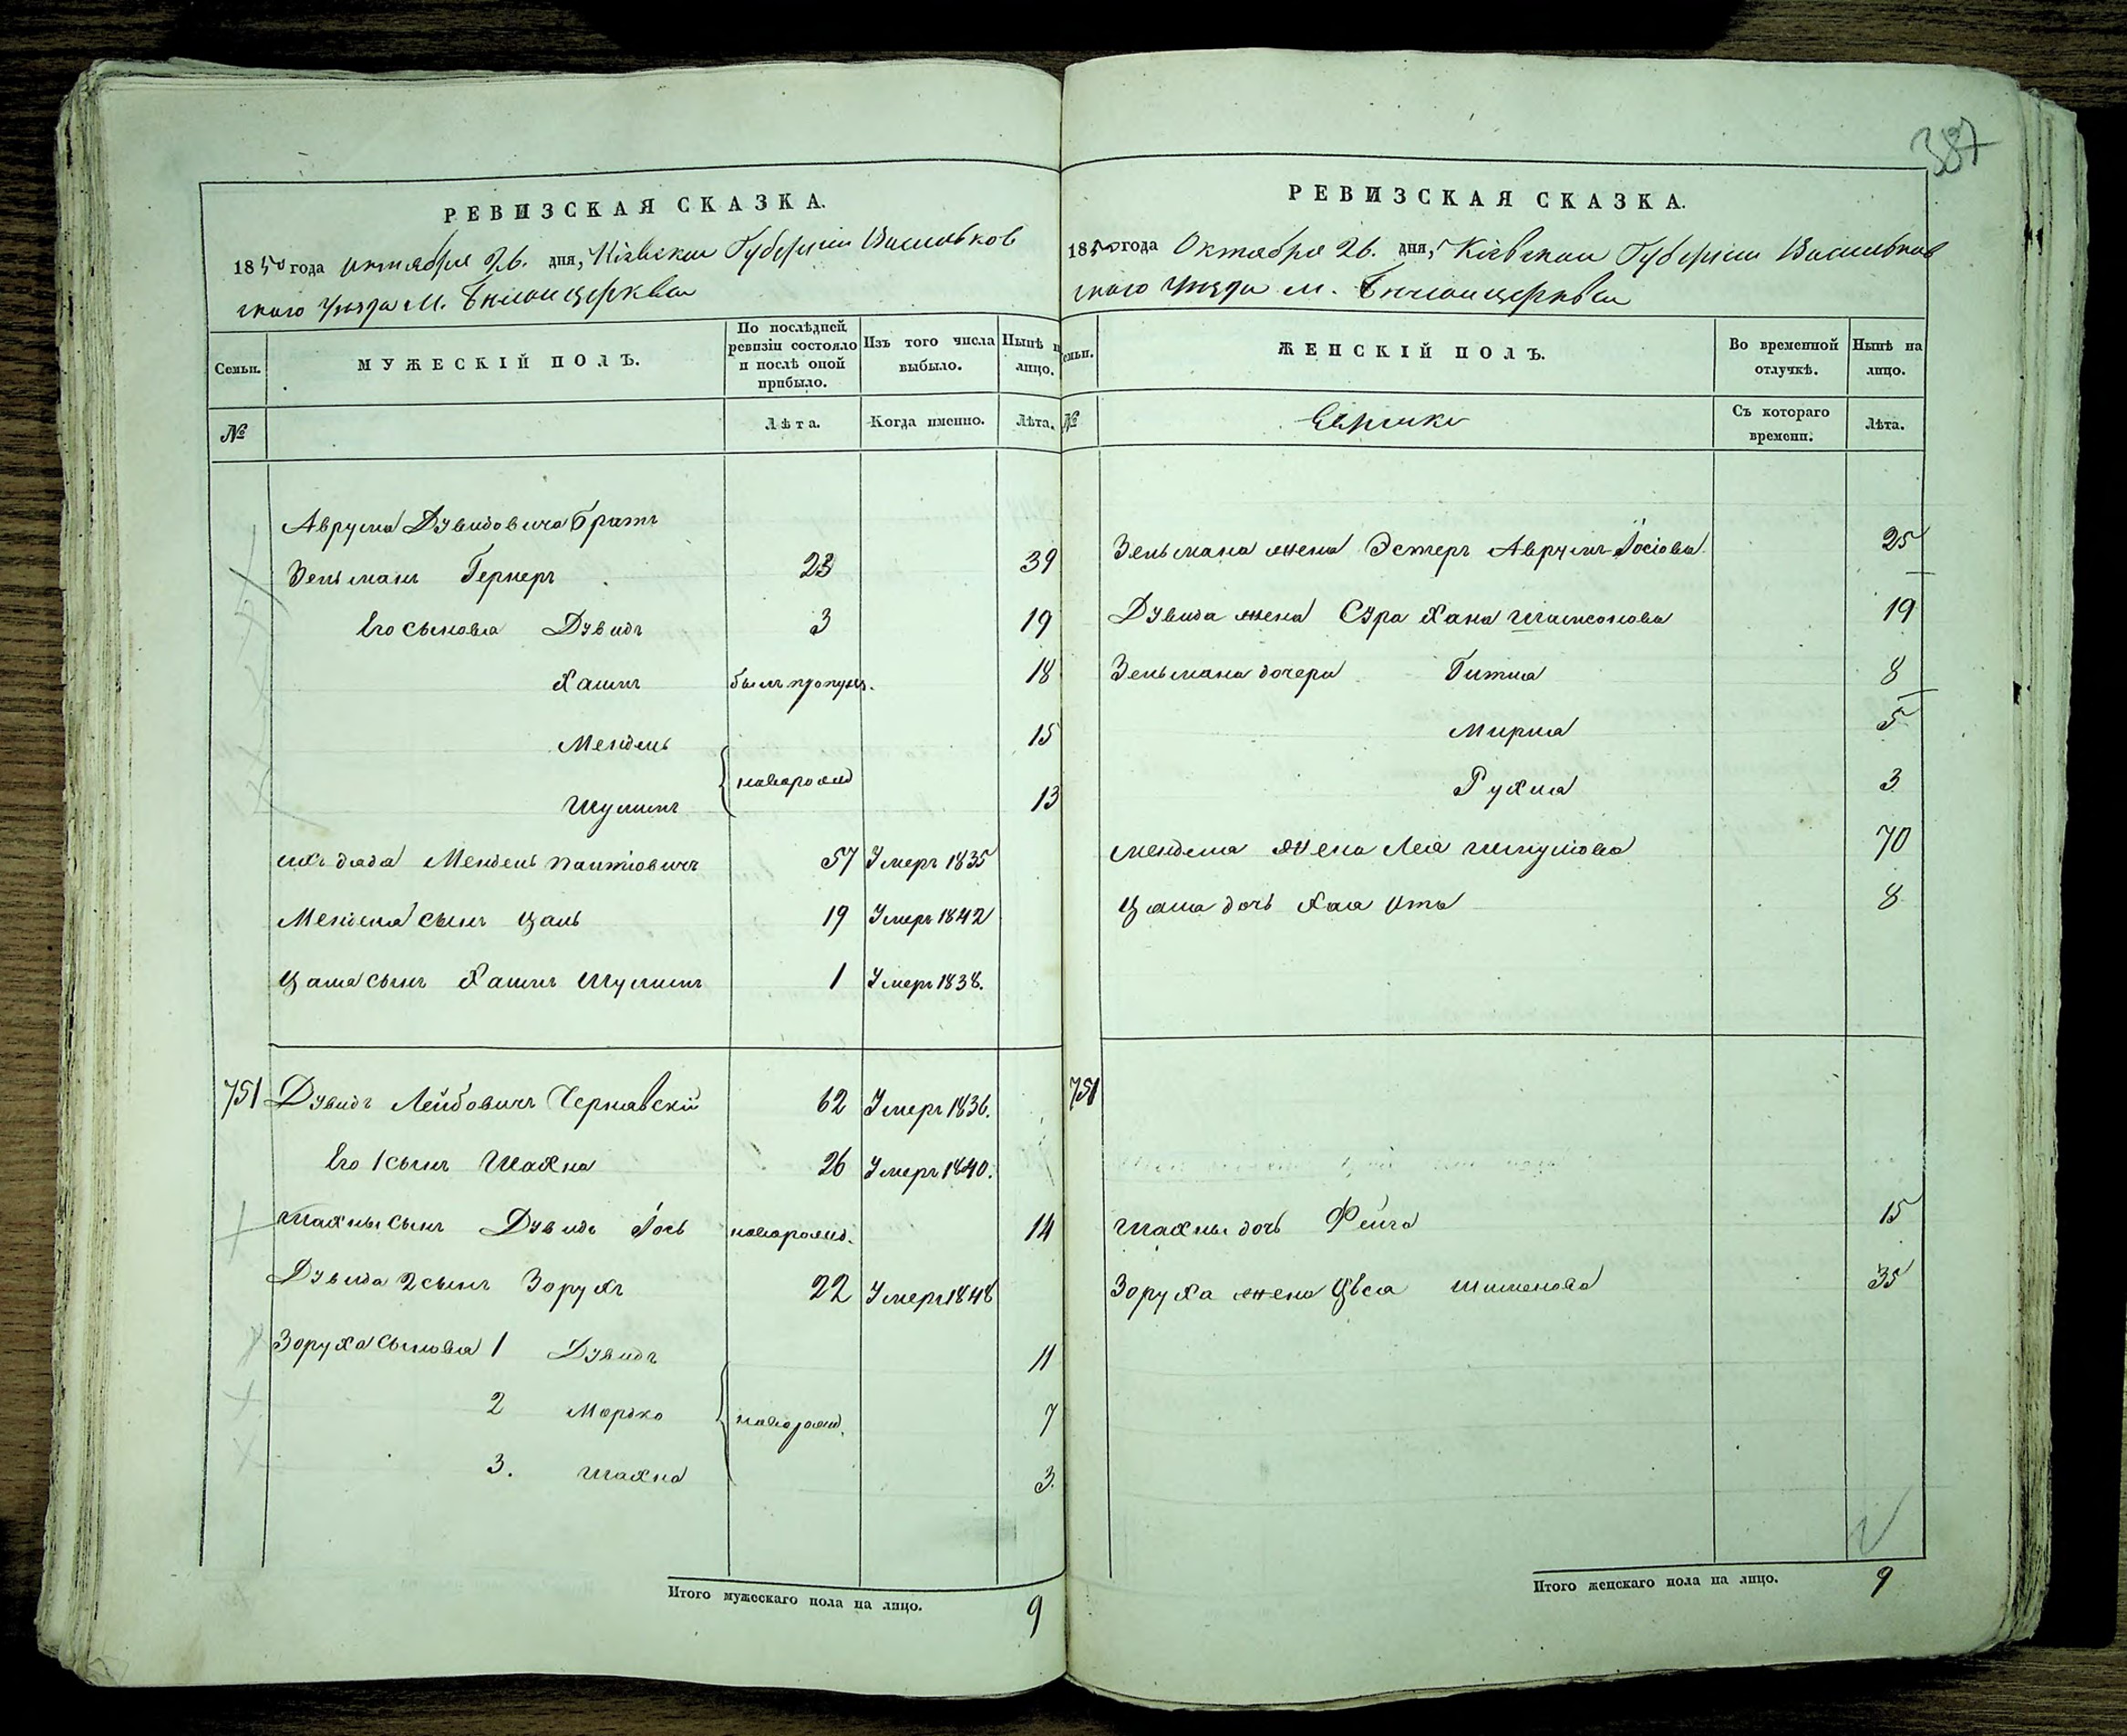 387
РЕВИЗСКАЯ СКАЗКА.
1850 года октября 26. дня, Кіевской Губерніи Васильков
ского уѣзда М. Бѣлойцеркви
Семьи.
МУЖЕСКІЙ ПОЛЪ.
По послѣдней ревизіи состояло и послѣ оной прибыло.
Изъ того числа выбыло.
Нынѣ н лицо.
№
Лѣта.
Когда именно.
Лѣта.
Аврума Дувидовича братъ
Зельманъ Гернеръ 23 39
Его сыновья Дувидъ 3 19
Хаимъ былъ пропущ. 18
Мендель 15
новорожд
Шулимъ 13
ихъ дядя Мендель 57 Умеръ 1835
Менделя сынъ Цаль 19 Умеръ 1842
Цаля сынъ Хаимъ Шулимъ 1 Умеръ 1838.
751 Дувидъ Лейбовичъ Чернявскій 62 Умеръ 1836.
Его 1 сынъ Шахна 26 Умеръ 1840.
Шахны сынъ Дувидъ Іось новорожд. 14
Дувида 2 сынъ Зорухъ 22 Умеръ 1848
Зоруха сыновья 1 Дувидъ 11
2 Мордко новорожд. 7
3. Шахна 3.
Итого мужескаго пола на лицо. 9
РЕВИЗСКАЯ СКАЗКА.
1850 года Октября 26. дня, Кіевской Губерніи Васильков
ского уѣзда м. Бѣлойцеркви
емьи.
ЖЕНСКІЙ ПОЛЪ.
Во временной отлучкѣ.
Нынѣ на лицо.
№
Еврейки
Съ котораго времени.
Лѣта.
Зельмана жена Эстеръ Аврумъ-Іосіова 25
Дувида жена Сура Хана 19
Зельмана дочери Гитля 8
Мирля 5
Рухля 3
Менделя жена Лея 70
Цаля дочь Хая Ита 8
751
Шахны дочь Фейга 15
Зоруха жена Цыся Шименова 35
Итого женскаго пола на лицо. 9